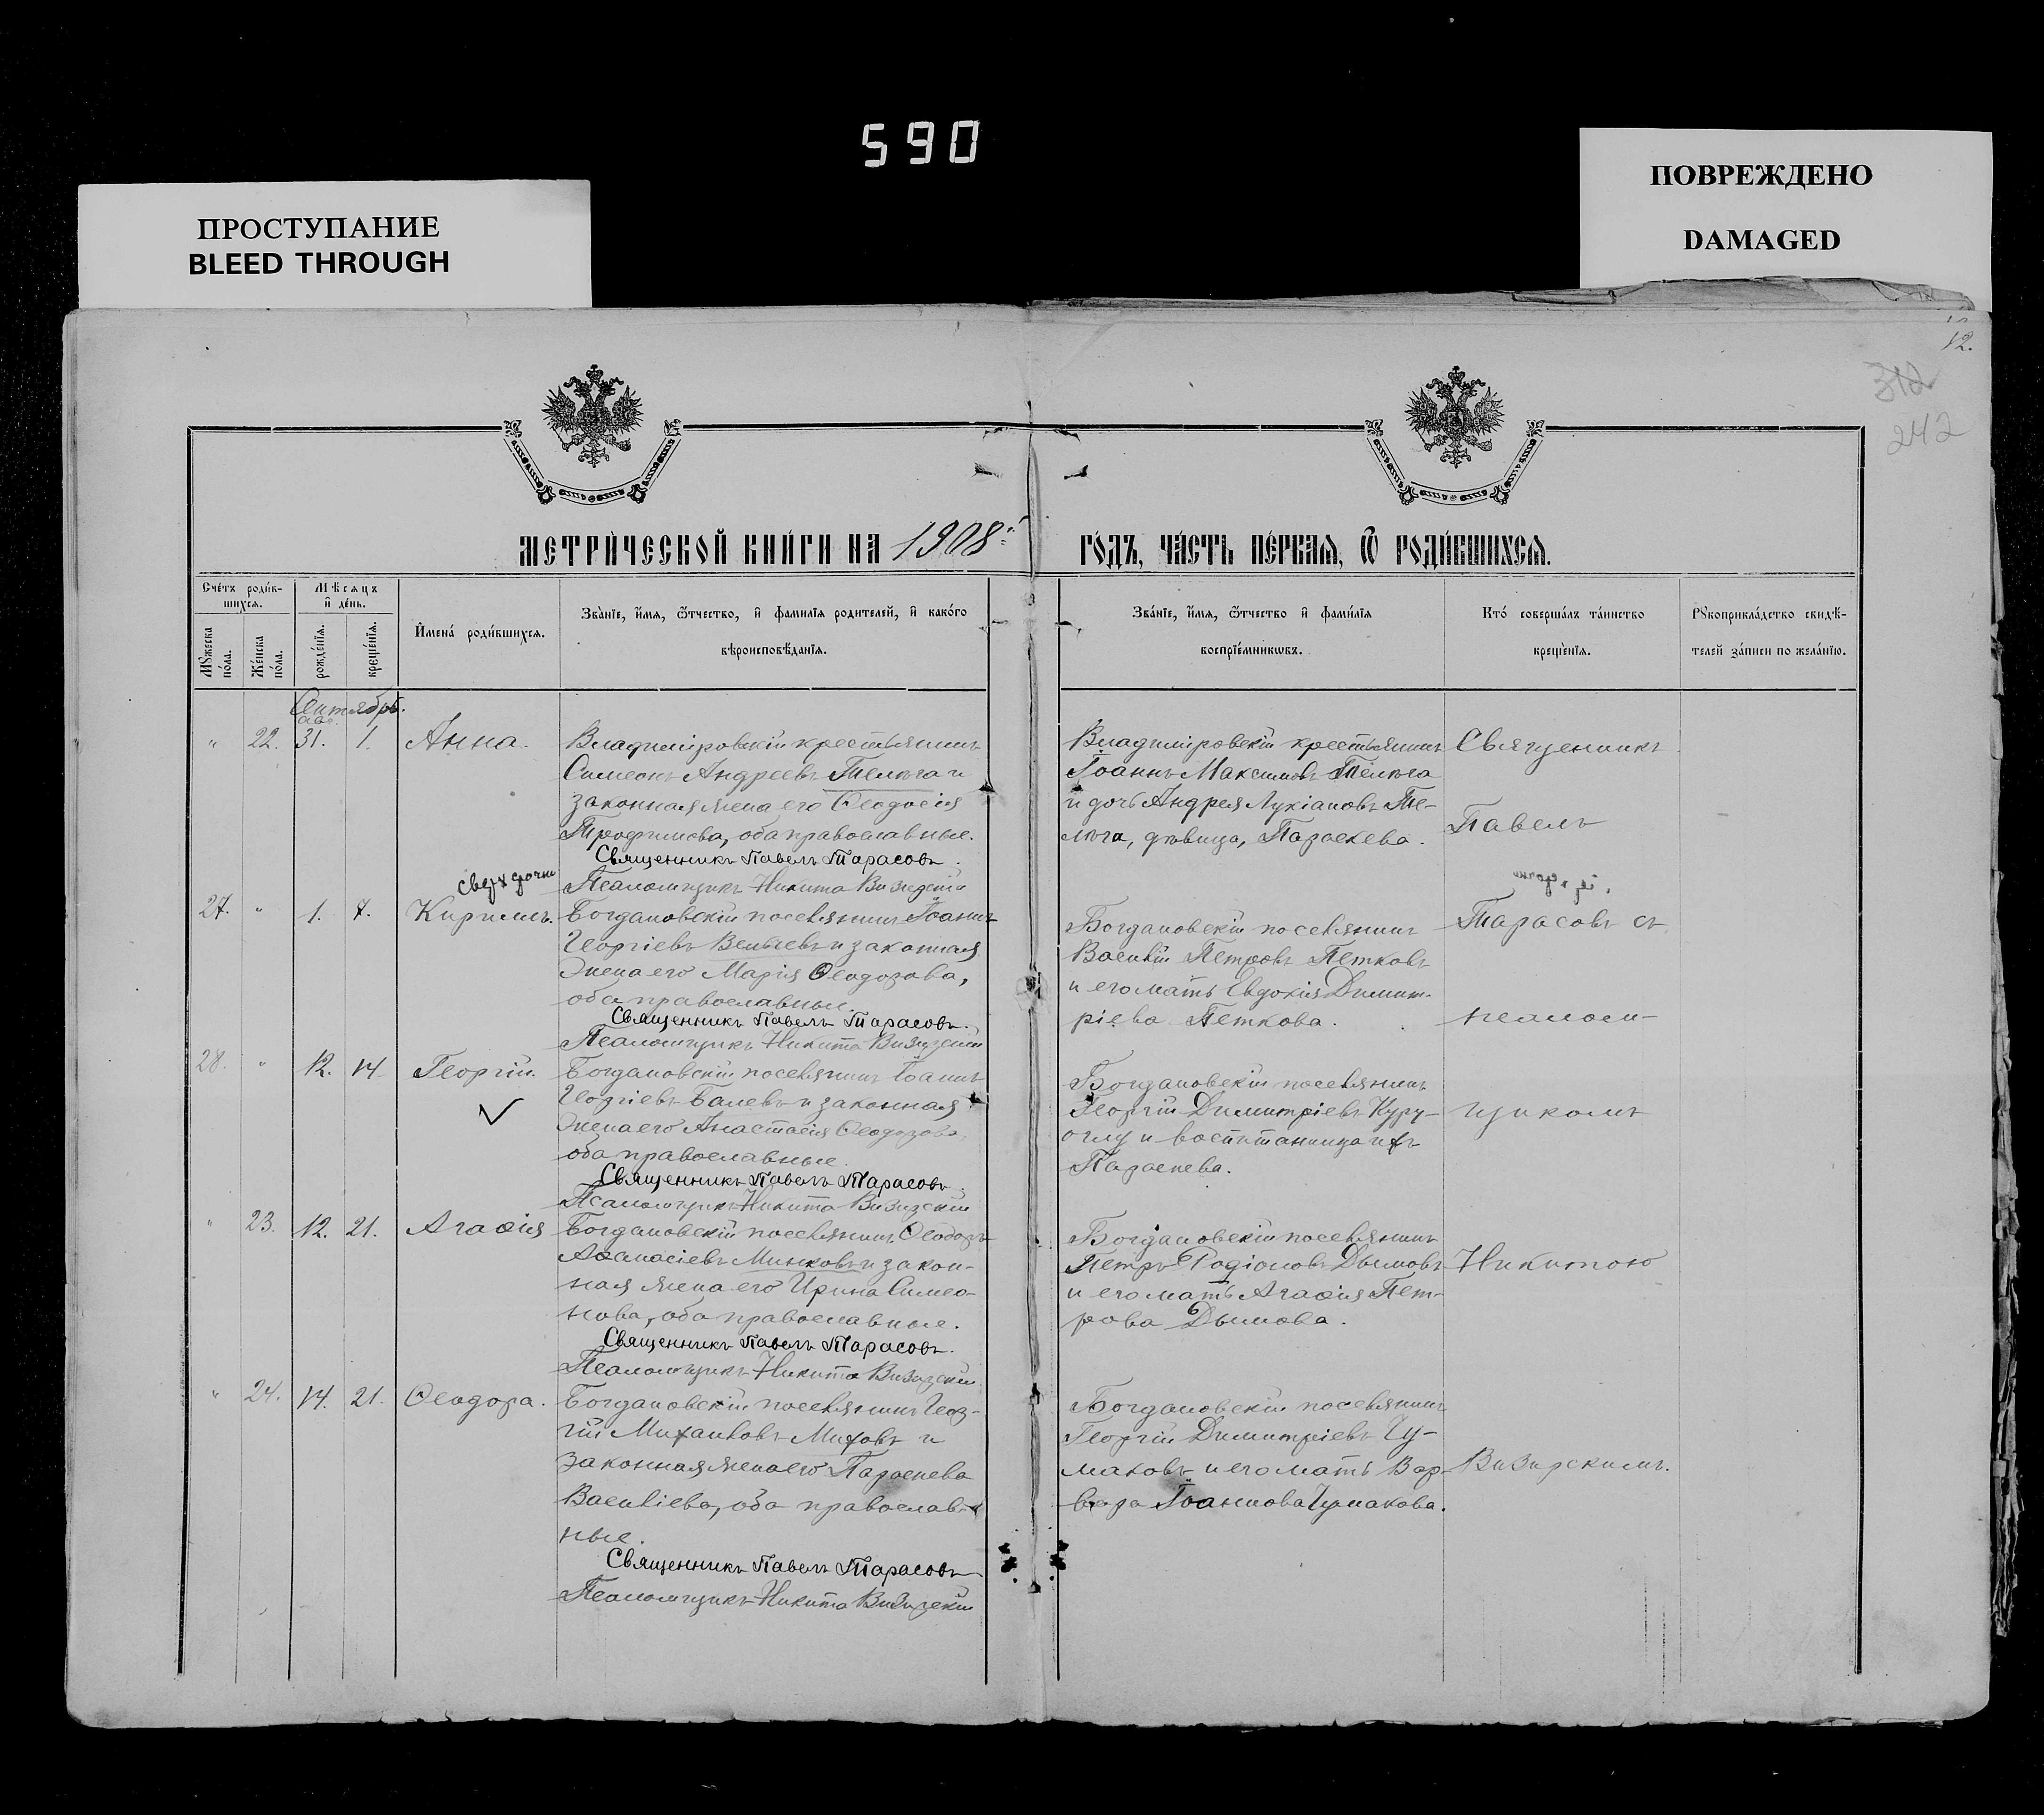 590
ПРОСТУПАНИЕ
BLEED THROUGH
ПОВРЕЖДЕНО
DAMAGED
12.
312
242
МЕТРИЧЕСКОЙ КНИГИ НА 1908й
ГОДЪ, ЧАСТЬ ПЕРВАЯ, Ѿ РОДИВШИХСЯ.
Счетъ родив-
шихся.
Мѣсяцъ
и день.
Мужеска
пола.
Женска
пола.
рожденія.
крещенія.
Имена родившихся.
Званіе, имя, ѿтчество, и фамилія родителей, и какого
вѣроисповѣданія.
Званіе, имя, ѿтчество и фамилія
воспріемниковъ.
Кто совершалъ таинство
крещенія.
Рукоприкладство свидѣ-
телей записи по желанію.
Сентябрь.
авг.
" 22. 31. 1. Анна.
Владимировскій крестьянинъ
Симеонъ Андреевъ Телѣга и
законная жена его Ѳеодосія
Трофимова, оба православные.
Священникъ Павелъ Тарасовъ.
Псаломщикъ Никита Визирскій
Владимировскій крестьянинъ
Іоаннъ Максимовъ Телѣга
и дочь Андрея Лукіановъ Те-
лѣга, дѣвица, Параскева.
Священникъ
Павелъ
27. " 1. 7. Кириллъ.
Богдановскій поселянинъ Іоаннъ
Георгіевъ Вельчевъ и законная
жена его Марія Ѳеодорова,
оба православные.
Священникъ Павелъ Тарасовъ.
Псаломщикъ Никита Визирскій
Богдановскій поселянинъ
Василій Петровъ Петковъ
и его мать Евдокія Димит-
ріева Петкова.
Тарасовъ съ
псалом-
28. " 12. 14. Георгій.
Богдановскій поселянинъ Іоаннъ
Георгіевъ Балевъ и законная
жена его Анастасія Ѳеодорова
оба православные.
Священникъ Павелъ Тарасовъ.
Псаломщикъ Никита Визирскій
Богдановскій поселянинъ
Георгій Димитріевъ Куру-
оглу и воспитанница ихъ
Параскева.
щикомъ
" 23. 12. 21. Агаѳія
Богдановскій поселянинъ Ѳеодоръ
Аѳанасіевъ Минковъ и закон-
ная жена его Ирина Симео-
нова, оба православные.
Священникъ Павелъ Тарасовъ.
Псаломщикъ Никита Визирскій
Богдановскій поселянинъ
Петръ Родіоновъ Дымовъ
и его мать Агаѳія Пет-
рова Дымова.
Никитою
" 24. 14. 21. Ѳеодора.
Богдановскій поселянинъ Геор-
гій Михаиловъ Миховъ и
законная жена его Параскева
Василіева, оба православ-
ные.
Священникъ Павелъ Тарасовъ
Псаломщикъ Никита Визирскій
Богдановскій поселянинъ
Георгій Димитріевъ Чу-
маковъ и его мать Вар-
вара Іоаннова Чумакова.
Визирскимъ.